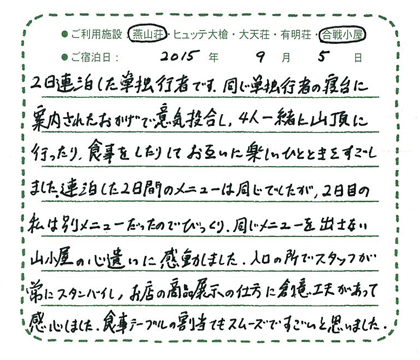 ●ご利用施設 燕山荘・ヒュッテ大槍・大天荘・有明荘・合戦小屋
●ご宿泊日： 2015年 9月 5日
2日連泊した単独行者です。同じ単独行者の寝台に
案内されたおかげで意気投合し、4人一緒に山頂に
行ったり、食事をしたりしてお互いに楽しいひとときをすごし
ました。連泊した2日間のメニューは同じでしたが、2日目の
私は別メニューだったのでびっくり。同じメニューを出さない
山小屋の心遣いに感動しました。入口の所でスタッフが
常にスタンバイし、お店の商品展示の仕方に創意工夫があって
感心しました。食事テーブルの割当てもスムーズですごいと思いました。